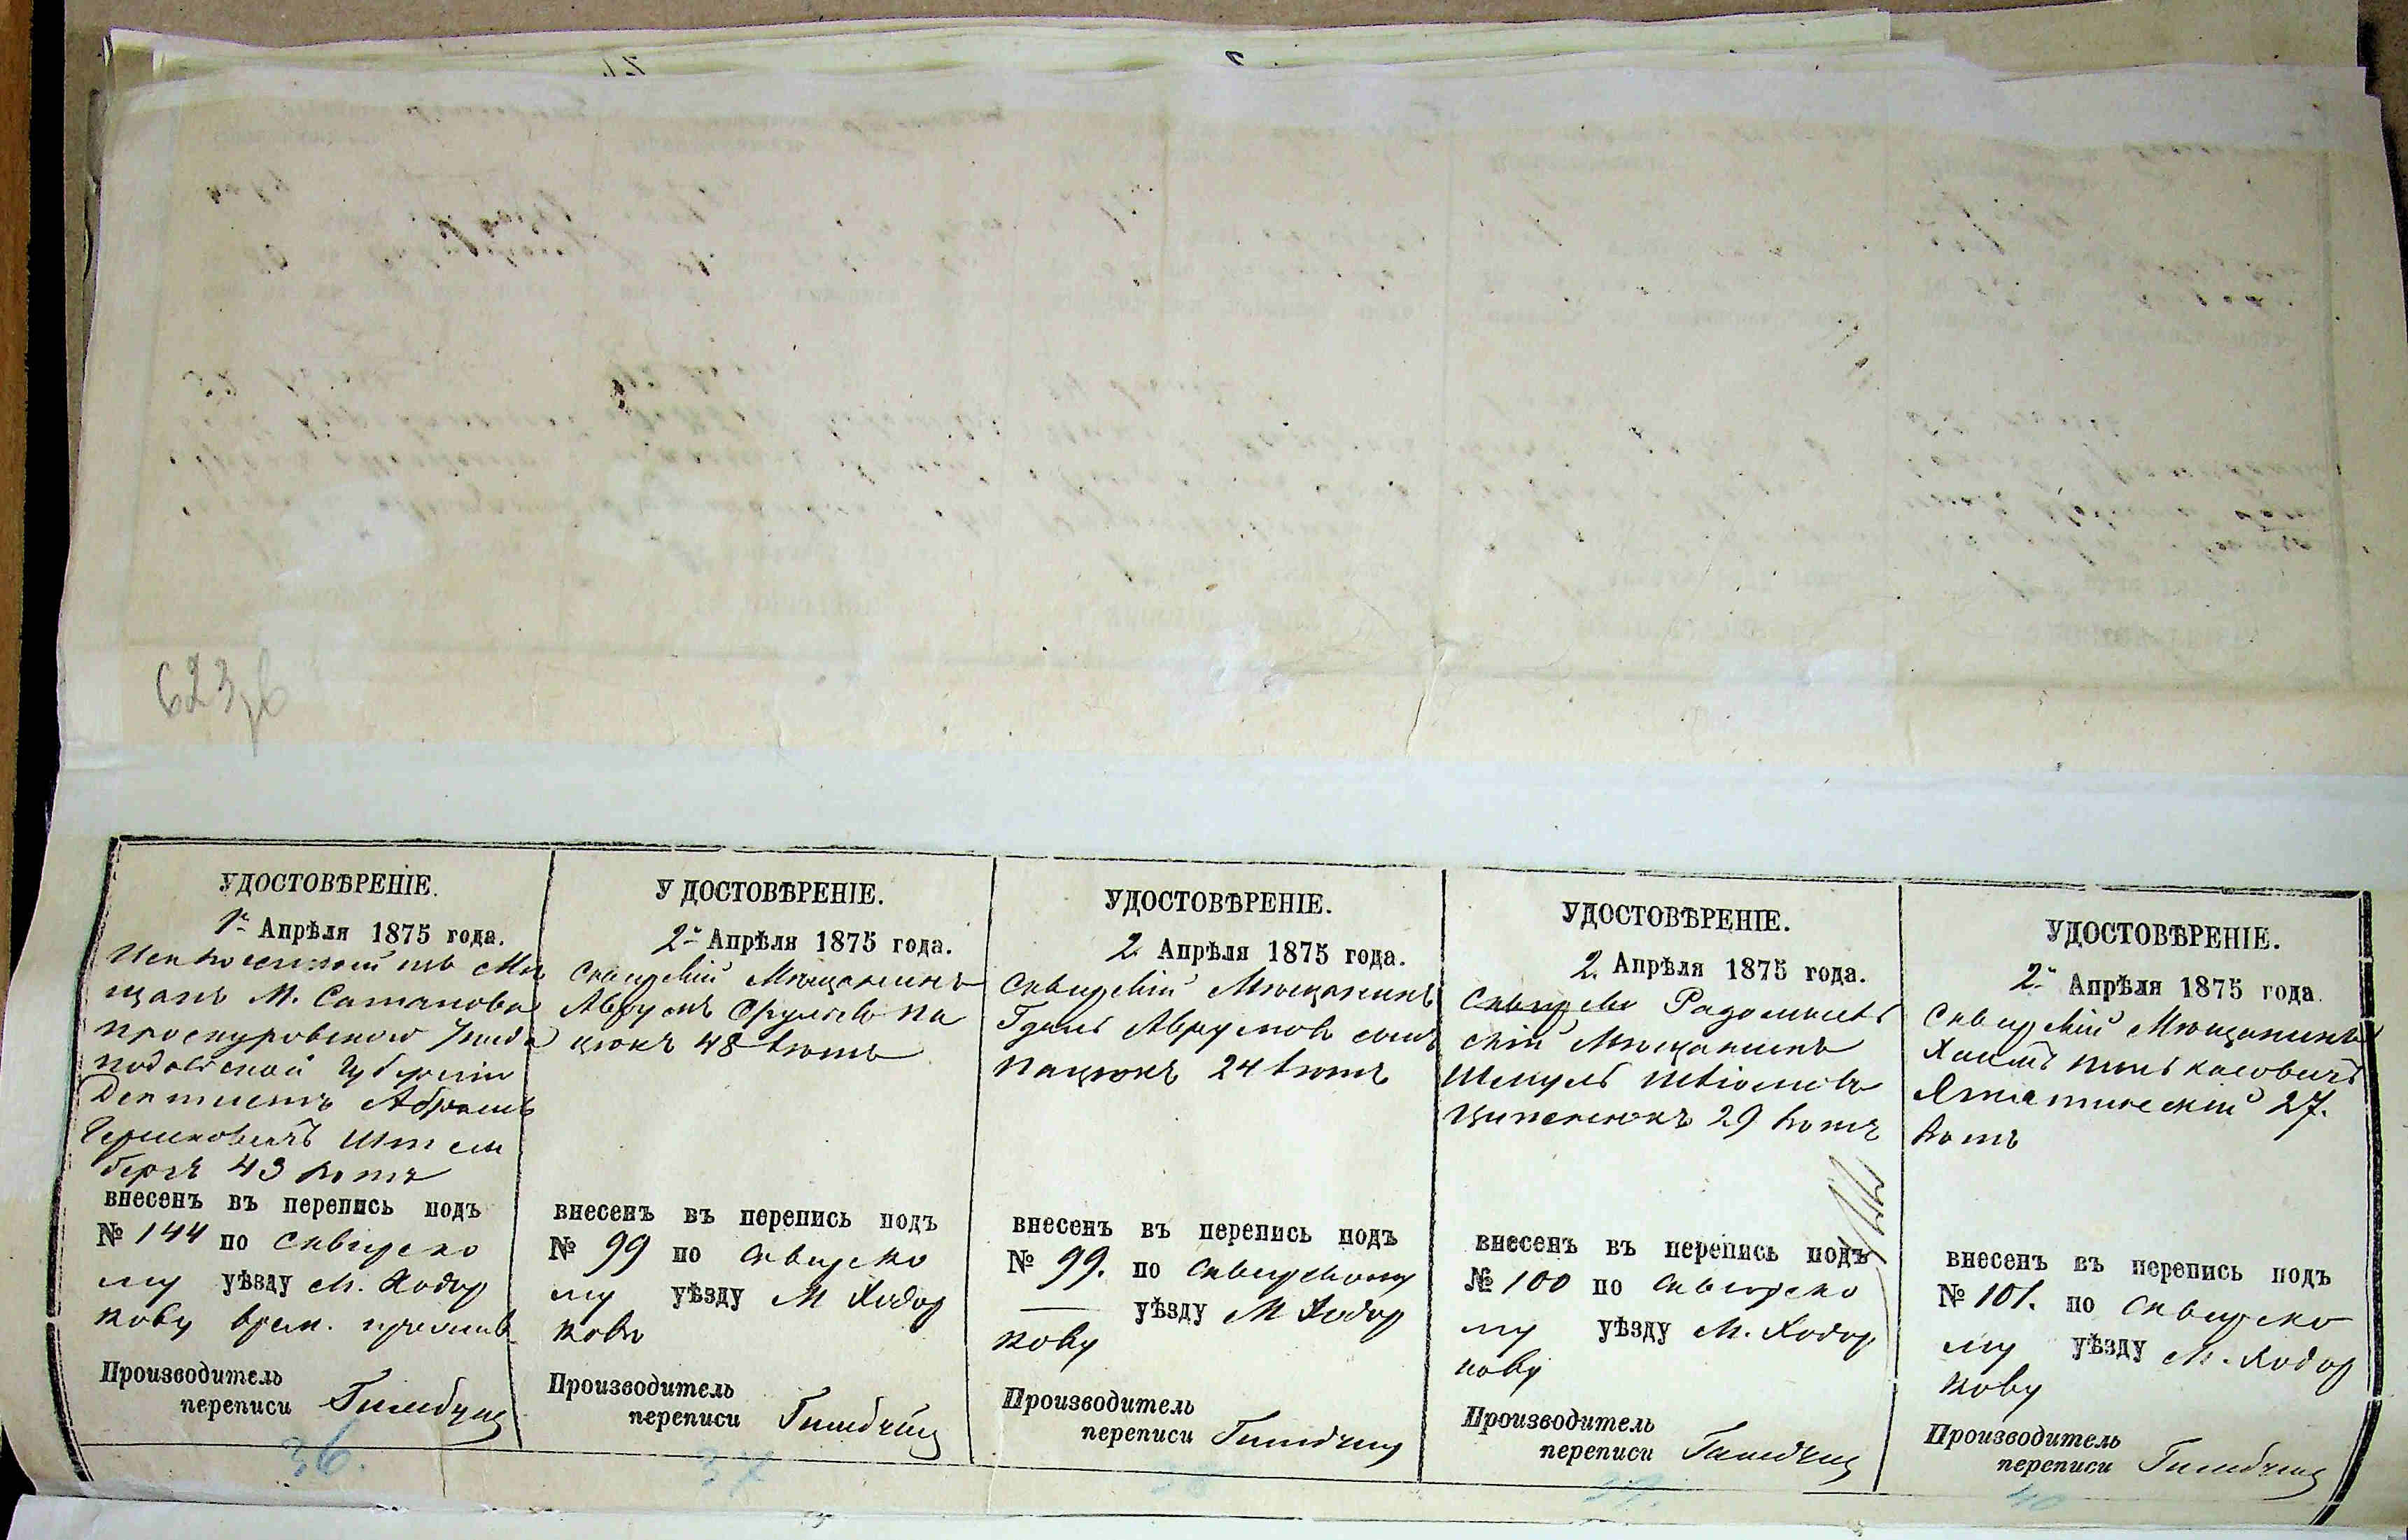 623об
УДОСТОВѢРЕНІЕ.
1го Апрѣля 1875 года.
изъ Мѣ
щанъ М. Сатанова
Проскуровскаго Уѣзда
Подольской Губерніи
Дантистъ Абрамъ
Гершковичъ Штем
бергъ 43 лѣтъ
внесенъ въ перепись подъ
№ 144 по Сквирско
му уѣзду М. Ходор
кову врем.
Производитель
переписи
36.
УДОСТОВѢРЕНІЕ.
2го Апрѣля 1875 года.
Сквирскій Мѣщанинъ
Аврумъ Срулевъ Па
цюкъ 48 лѣтъ
внесенъ въ перепись подъ
№ 99 по Сквирско
му уѣзду М Ходор
кову
Производитель
переписи
37
УДОСТОВѢРЕНІЕ.
2. Апрѣля 1875 года.
Сквирскій Мѣщанинъ
Аврумовъ сынъ
Пацюкъ 24 лѣтъ
внесенъ въ перепись подъ
№ 99. по Сквирскому
уѣзду М Ходор
кову
Производитель
переписи
38
УДОСТОВѢРЕНІЕ.
2. Апрѣля 1875 года.
Радомысль
скій Мѣщанинъ
Шмуль
Ципенюкъ 29 лѣтъ
внесенъ въ перепись подъ
№ 100 по Сквирско
му уѣзду М. Ходор
кову
Производитель
переписи
39.
УДОСТОВѢРЕНІЕ.
2го Апрѣля 1875 года.
Сквирскій Мѣщанинъ
Хаимъ Пинькасовичъ
27.
лѣтъ
внесенъ въ перепись подъ
№ 101. по Сквирско
му уѣзду М. Ходор
кову
Производитель
переписи
40